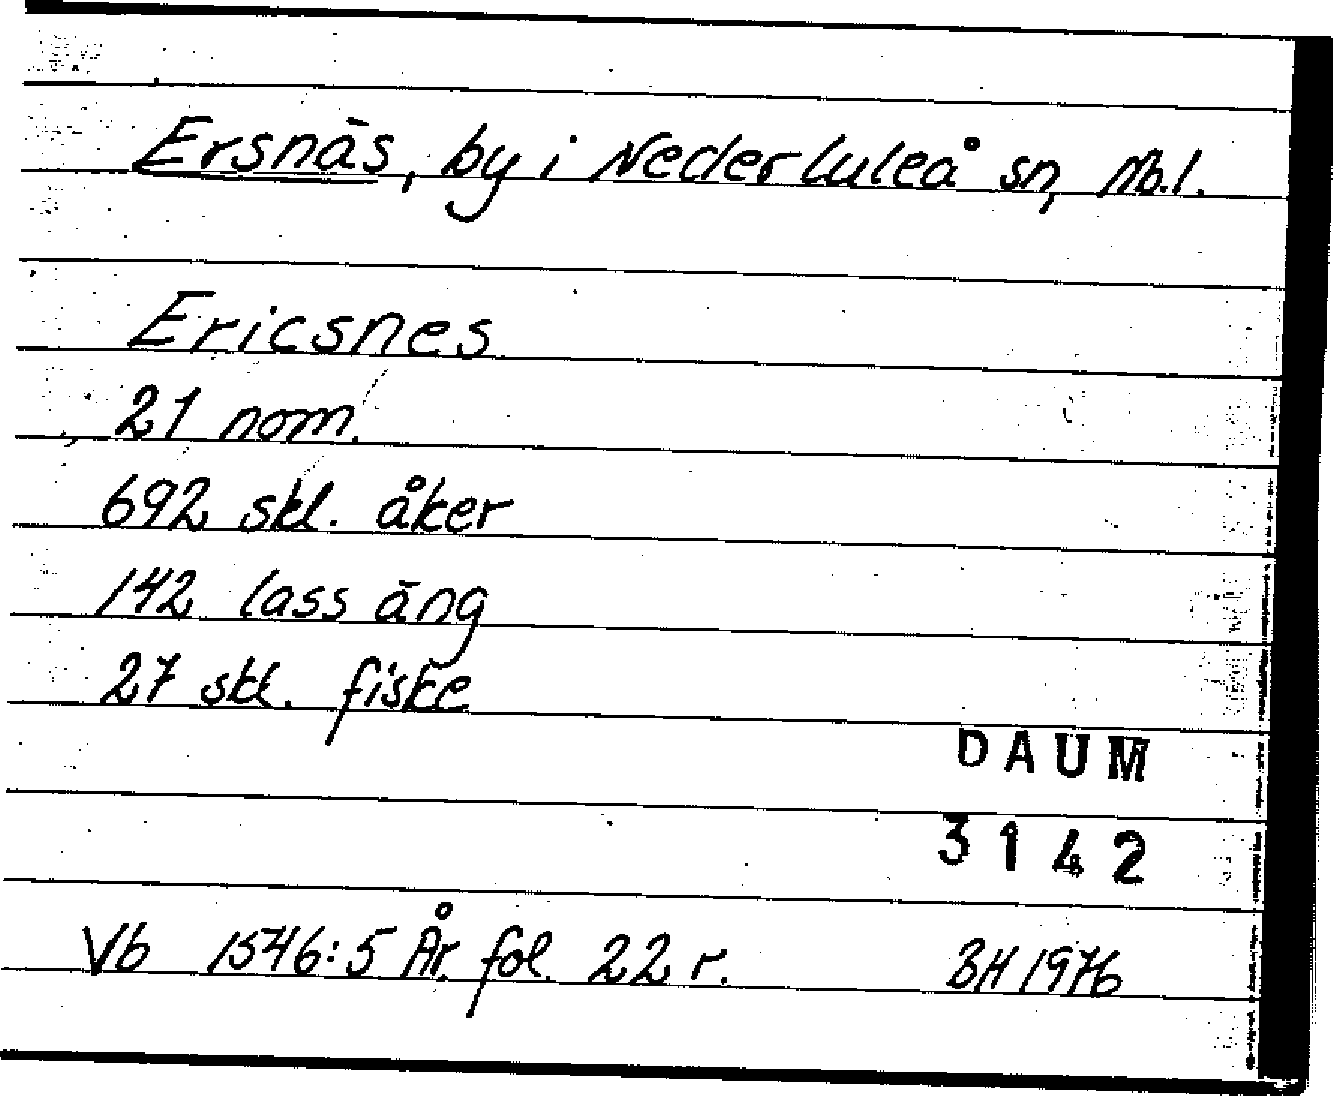 Ersnäs, by i Nederluleå sn, Nb.l.
Ericsnes
21 nom.
692 skl. åker
142 lass äng
27 skl. fiske
DAUM
3142
Vb 1546:5 År. fol. 22 r. BH 1976